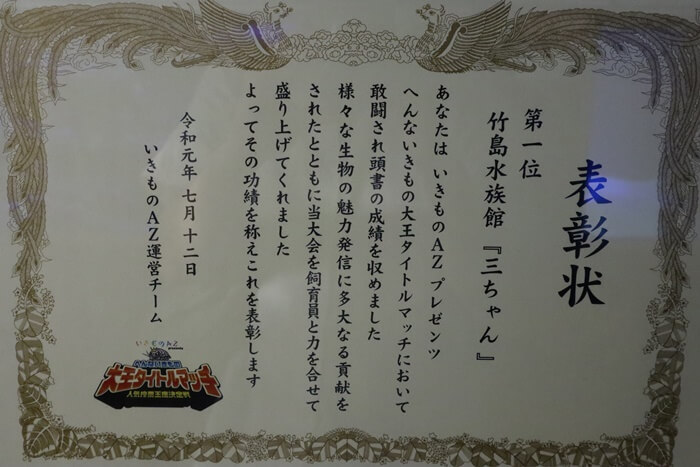 表彰状
第一位
竹島水族館『三ちゃん』
あなたは いきものAZ プレゼンツ
へんないきもの大王タイトルマッチにおいて
敢闘され頭書の成績を収めました
様々な生物の魅力発信に多大なる貢献を
されたとともに当大会を飼育員と力を合せて
盛り上げてくれました
よってその功績を称えこれを表彰します
令和元年 七月 十二日
いきものAZ運営チーム
いきものAZ
presents
へんないきもの
大王タイトルマッチ